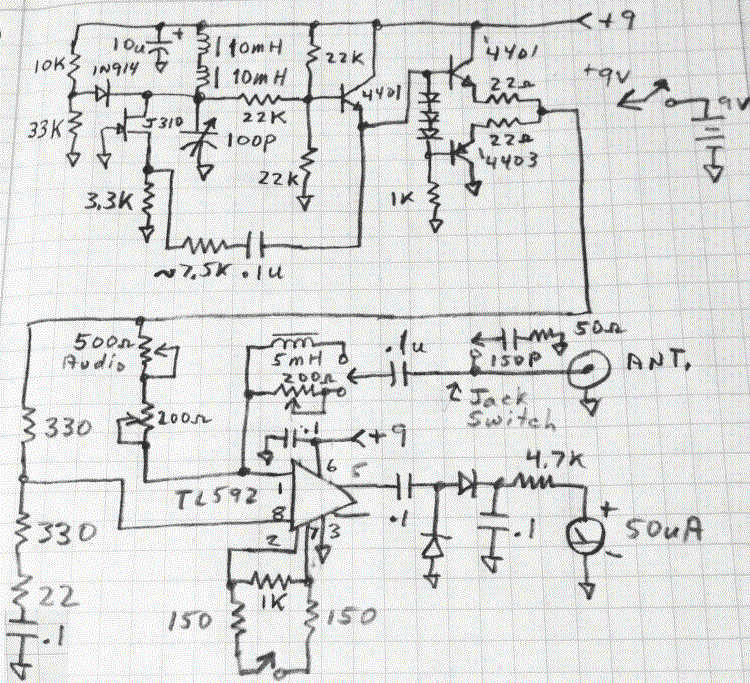 +9
10u
+
10mH
10mH
22K
'4401
10K
1N914
4401
22Ω
+9V
9V
33K
J310
100P
22K
22Ω
'4403
22K
1K
3.3K
~7.5K .1u
500Ω
Audio
5mH
.1u
150P
50Ω
ANT.
200Ω
Jack
Switch
200Ω
330
.1
+9
6
5
4.7K
TL592
1
8
.1
+
330
2
7
3
.1
50uA
-
22
1K
150
150
.1